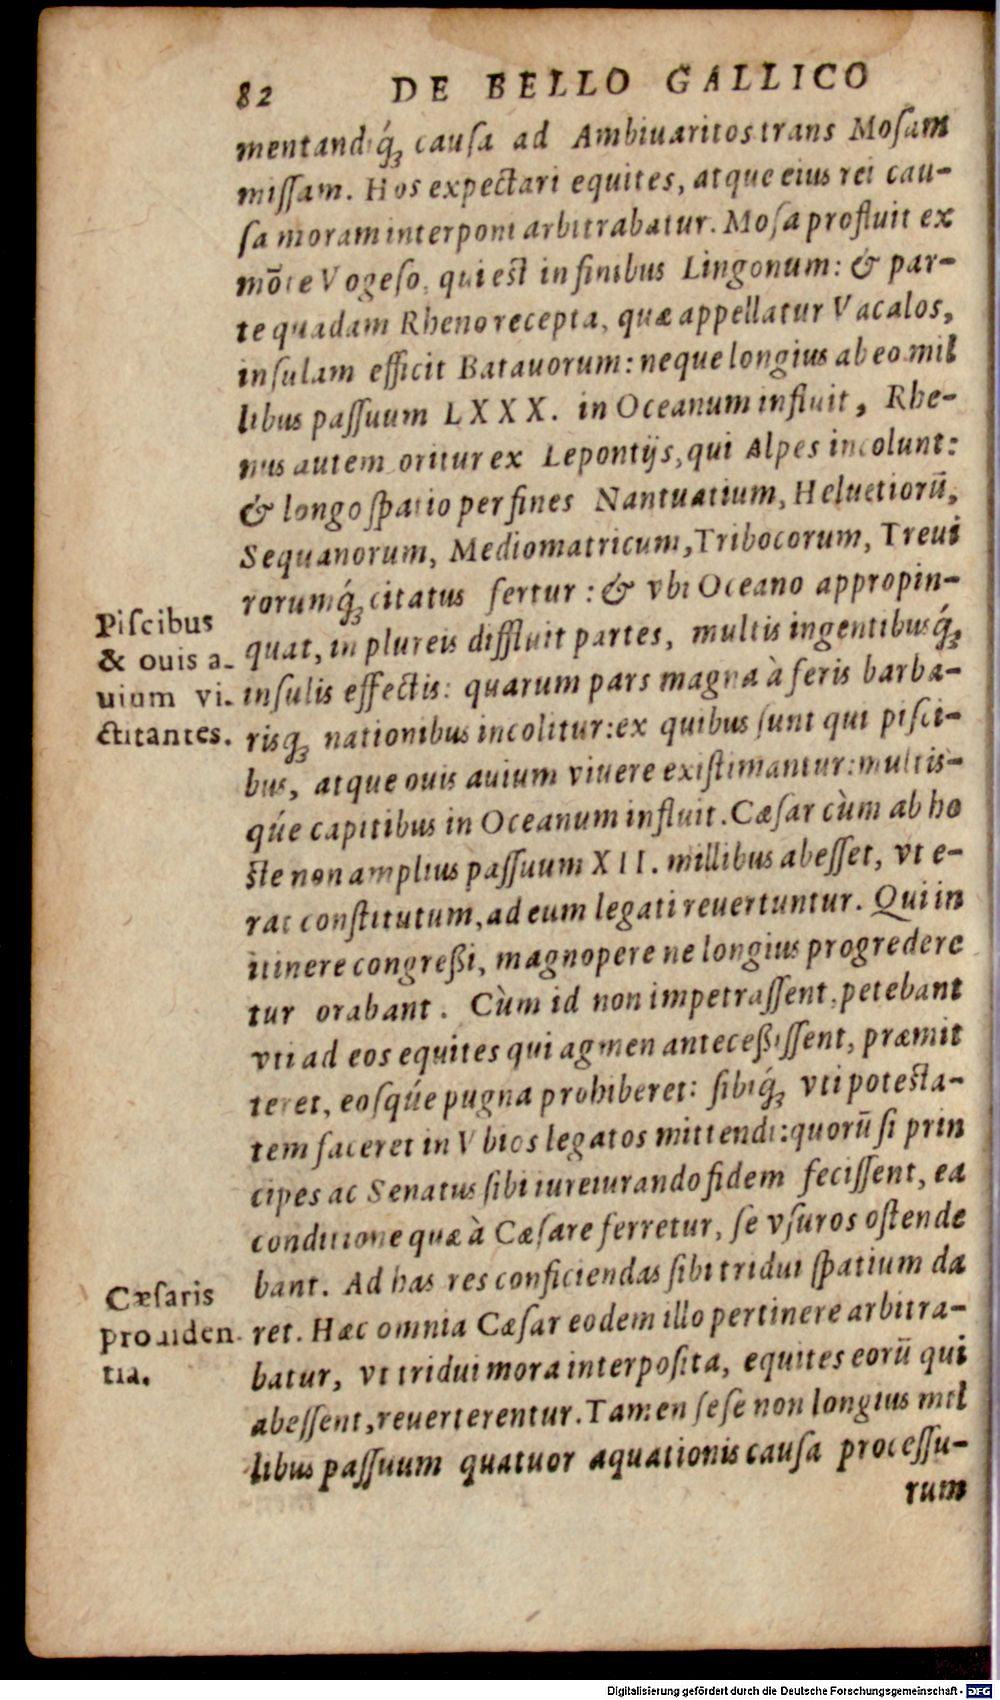 82 DE BELLO GALLICO
mentandiq́ꝫ cauſa ad Ambiuaritos trans Moſam
miſſam. Hos expectari equites, atque eius rei cau-
ſa moram interponi arbitrabatur. Moſa profluit ex
mõte Vogeſo, qui est in finibus Lingonum: & par-
te quadam Rheno recepta, quæ appellatur Vacalos,
inſulam efficit Batauorum: neque longius ab eo mil
libus paſſuum LXXX. in Oceanum influit, Rhe-
nus autem oritur ex Lepontijs, qui Alpes incolunt:
& longo ſpatio per fines Nantuatium, Heluetiorũ,
Sequanorum, Mediomatricum, Tribocorum, Treui
rorumq́ꝫ citatus fertur: & vbi Oceano appropin-
quat, in plureis diffluit partes, multis ingentibusq́ꝫ
inſulis effectis: quarum pars magna à feris barba-
risqꝫ nationibus incolitur: ex quibus ſunt qui piſci-
bus, atque ouis auium viuere exiſtimantur: multis-
qúe capitibus in Oceanum influit. Cæſar cùm ab ho
ste non amplius paſſuum XII. millibus abeſſet, vt e-
rat conſtitutum, ad eum legati reuertuntur. Qui in
itinere congreßi, magnopere ne longius progredere
tur orabant. Cùm id non impetraſſent, petebant
vti ad eos equites qui agmen anteceßiſſent, præmit
teret, eoſqúe pugna prohiberet: ſibiq́ꝫ vti potesta-
tem faceret in Vbios legatos mittendi: quorũ ſi prin
cipes ac Senatus ſibi iureiurando fidem feciſſent, ea
conditione quæ à Cæſare ferretur, ſe vſuros oſtende
bant. Ad has res conficiendas ſibi tridui ſpatium da
ret. Hæc omnia Cæſar eodem illo pertinere arbitra-
batur, vt tridui mora interpoſita, equites eorũ qui
abeſſent, reuerterentur. Tamen ſeſe non longius mil
libus paſſuum quatuor aquationis cauſa proceſſu-
rum
Piſcibus
& ouis a-
uium vi-
ctitantes.
Cæſaris
prouiden-
tia.
Digitalisierung gefördert durch die Deutsche Forschungsgemeinschaft - DFG